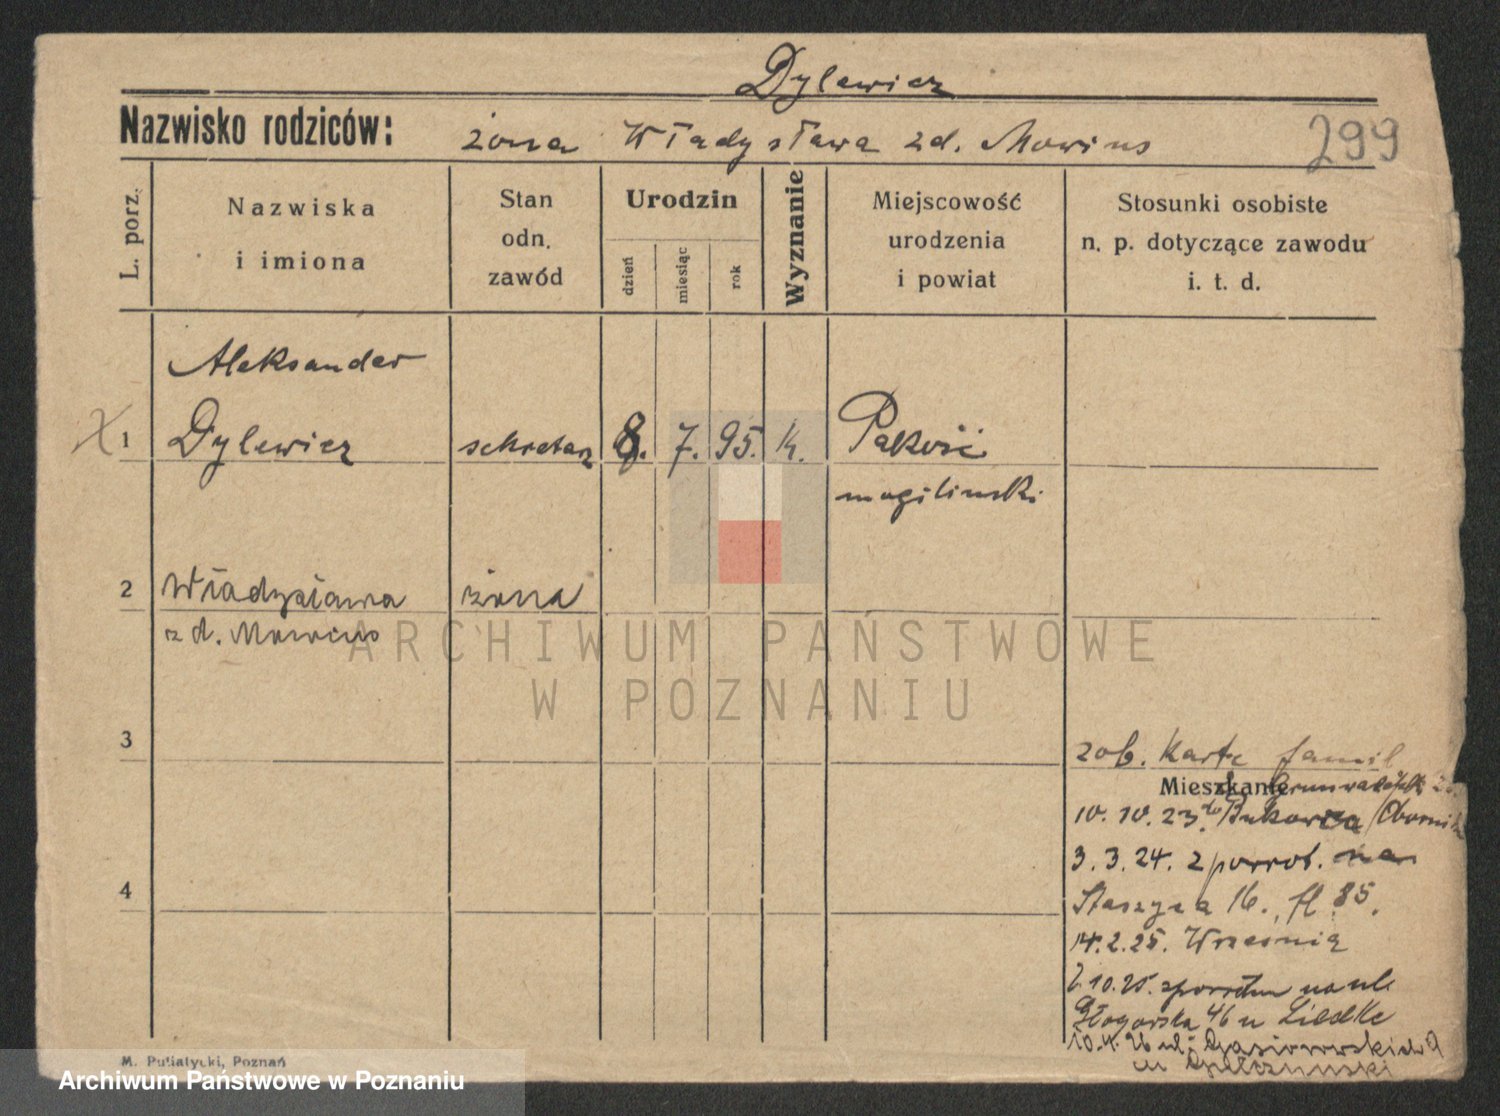 Dylewicz
Nazwisko rodziców: żona Władysława zd. Mowius 299
L. porz.
Nazwiska i imiona
Stan odn. zawód
Urodzin
dzień miesiąc rok
Wyznanie
Miejscowość urodzenia i powiat
Stosunki osobiste n. p. dotyczące zawodu i. t. d.
Aleksander
1 Dylewicz sekretarz 8. 7. 95. k. Pakość
mogilinski
2 Władysława żona
z d. Mowius
3
zob. Kartę famil
Mieszkanie
10. 10. 23. do
3. 3. 24. z powrot. na
4
Staszyca 16.
14. 2. 25. Września
na ul.
Głogowska 46 u Liedke
10.4.26 ul.
M. Putiatycki, Poznań
ARCHIWUM PAŃSTWOWE
W POZNANIU
Archiwum Państwowe w Poznaniu